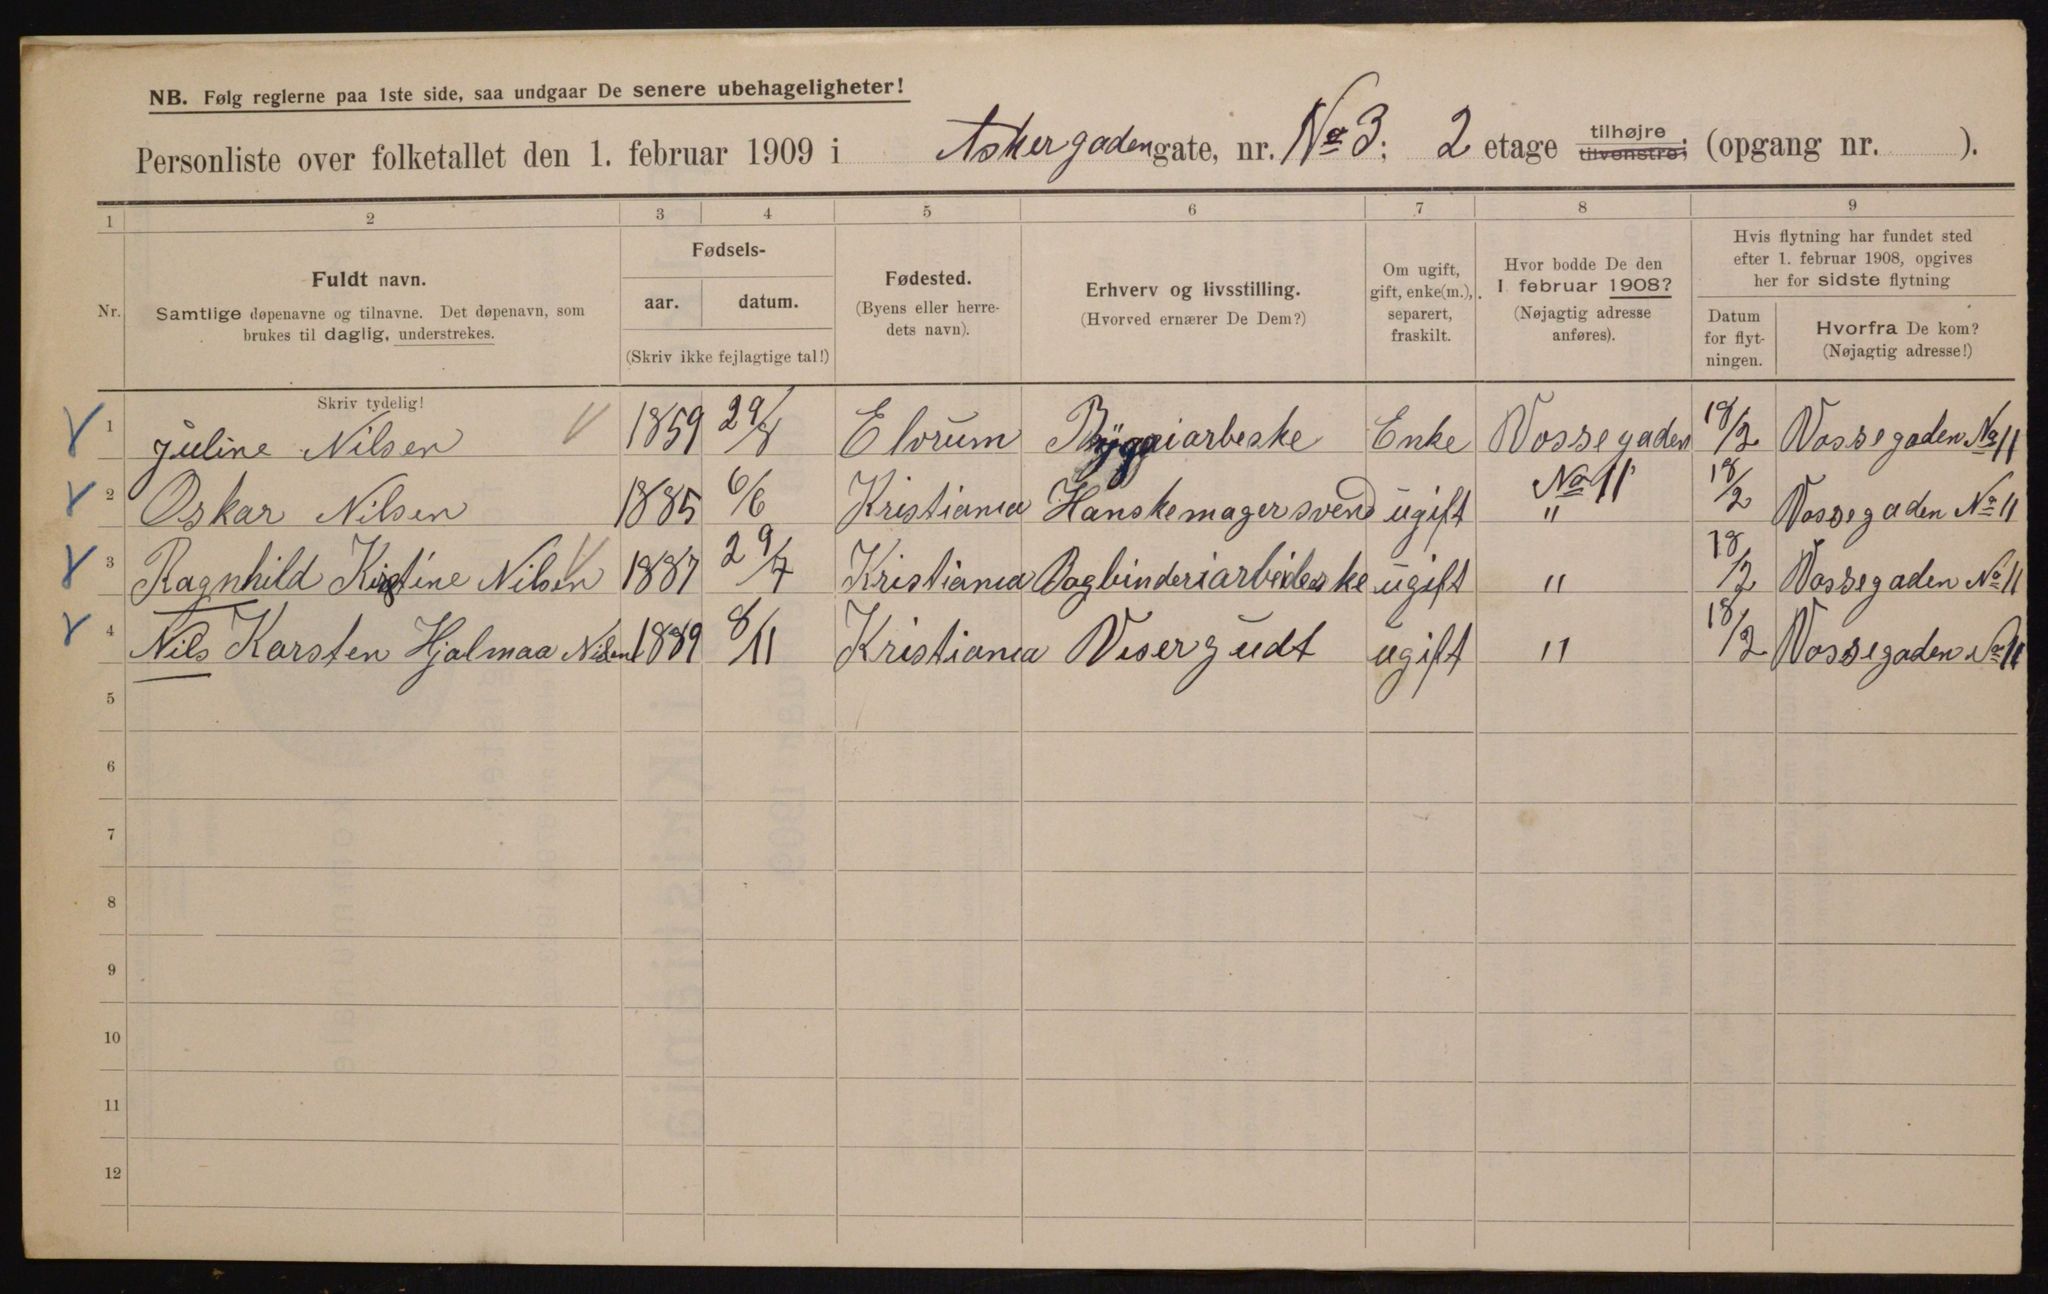 NB. Følg reglerne paa 1ste side, saa undgaar De senere ubehageligheter!
Personliste over folketallet den 1. februar 1909 i Askergadengate, nr. No 3; 2 etage tilhøjre tilvenstre; (opgang nr. ).
1 2 3 4 5 6 7 8 9
Nr.
Fuldt navn.
Samtlige døpenavne og tilnavne. Det døpenavn, som
brukes til daglig, understrekes.
Skriv tydelig!
Fødsels-
aar. datum.
(Skriv ikke fejlagtige tal!)
Fødested.
(Byens eller herre-
dets navn).
Erhverv og livsstilling.
(Hvorved ernærer De Dem?)
Om ugift,
gift, enke(m.),
separert,
fraskilt.
Hvor bodde De den
1. februar 1908?
(Nøjagtig adresse
anføres).
Hvis flytning har fundet sted
efter 1. februar 1908, opgives
her for sidste flytning
Datum
for flyt-
ningen.
Hvorfra De kom?
(Nøjagtig adresse!)
1 Juline Nilsen 1859 29/8 Elvrum Enke Vossegaden 18/2 Vossegaden No 11
2 Oskar Nilsen 1885 6/6 Kristiania Hanskemagersvend ugift No 11 " 18/2 Vossegaden No 11
3 Ragnhild Kristine Nilsen 1887 29/7 Kristiania Bogbinderiarbeideske ugift " 18/2 Vossegaden No 11
4 Nils Karsten Hjalmaa Nilsen 1889 8/11 Kristiania Visergudt ugift " 18/2 Vossegaden No 11
5
6
7
8
9
10
11
12